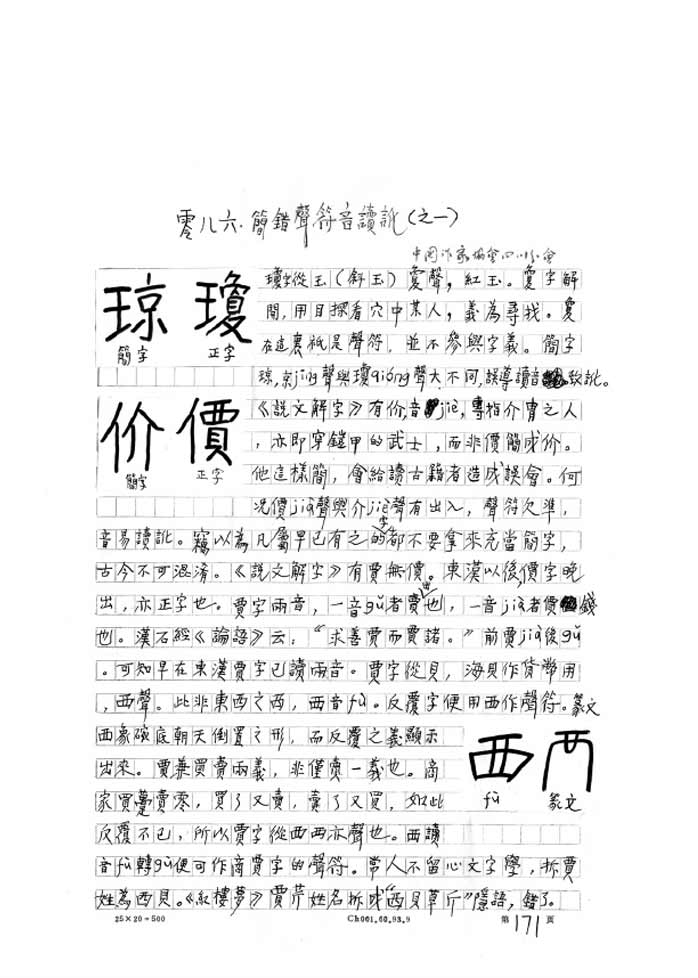 零八六.簡錯聲符音讀訛(之一)
中国作家協會四川分會
琼 瓊
簡字 正字
瓊字從玉(斜玉)敻聲,紅玉。敻字解
開,用目探看穴中某人,義為尋找。敻
在這裏祇是聲符,並不參與字義。簡字
琼,京jīng聲與瓊qióng聲大不同,誤導讀音致訛。
价 價
簡字 正字
《說文解字》有价,音jiè,專指介胄之人
,亦即穿鎧甲的武士,而非價簡成价。
他這樣簡,會給讀古籍者造成誤會。何
况價jià聲與介jiè聲有出入,聲符欠準,
音易讀訛。竊以為凡屬早已有之的字都不要拿來充當簡字,
古今不可混淆。《說文解字》有賈無價。東漢以後,價字晚
出,亦正字也。賈字兩音,一音gǔ者賈也,一音jià者價錢
也。漢石經《論語》云:“求善賈而賈諸。”前賈jià後gǔ
。可知早在東漢賈字已讀兩音。賈字從貝,海貝作貨幣用
,襾聲。此非東西之西,襾音fǔ。反覆字便用襾作聲符。篆文
襾象碗底朝天倒置之形,而反覆之義顯示
出來。賈兼買賣兩義,非僅賣一義也。商
家買躉賣零,買了又賣,賣了又買,如此
反覆不已,所以賈字從襾襾亦聲也。襾讀
襾
fǔ 篆文
音fǔ轉gǔ便可作商賈字的聲符。常人不留心文字學,拆賈
姓為西貝。《紅樓夢》賈芹姓名拆成“西貝草斤”隱語,錯了。
25×20=500 Ch001.60.93.9 第171页